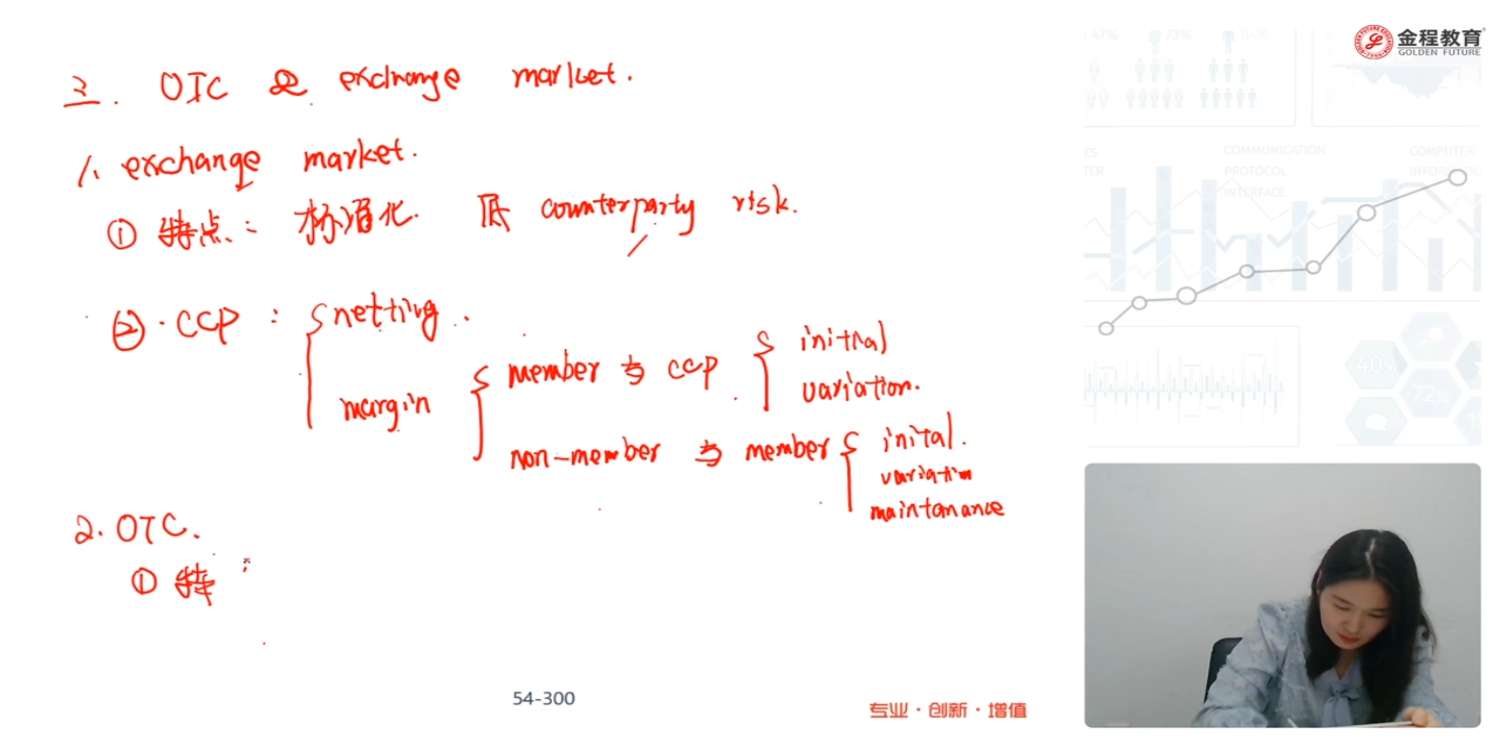 三. OTC & exchange market.
1. exchange market.
① 特点: 标准化. 低 counterparty risk.
② . CCP : { netting.
margin { member 与 CCP { initial
variation.
non-member 与 member { inital.
variation
maintanance
2. OTC.
① 特 :
54-300
专业·创新·增值
金程教育
GOLDEN FUTURE
COMMUNICATION
PROTOCOL
INTERFACE
COMPUTER